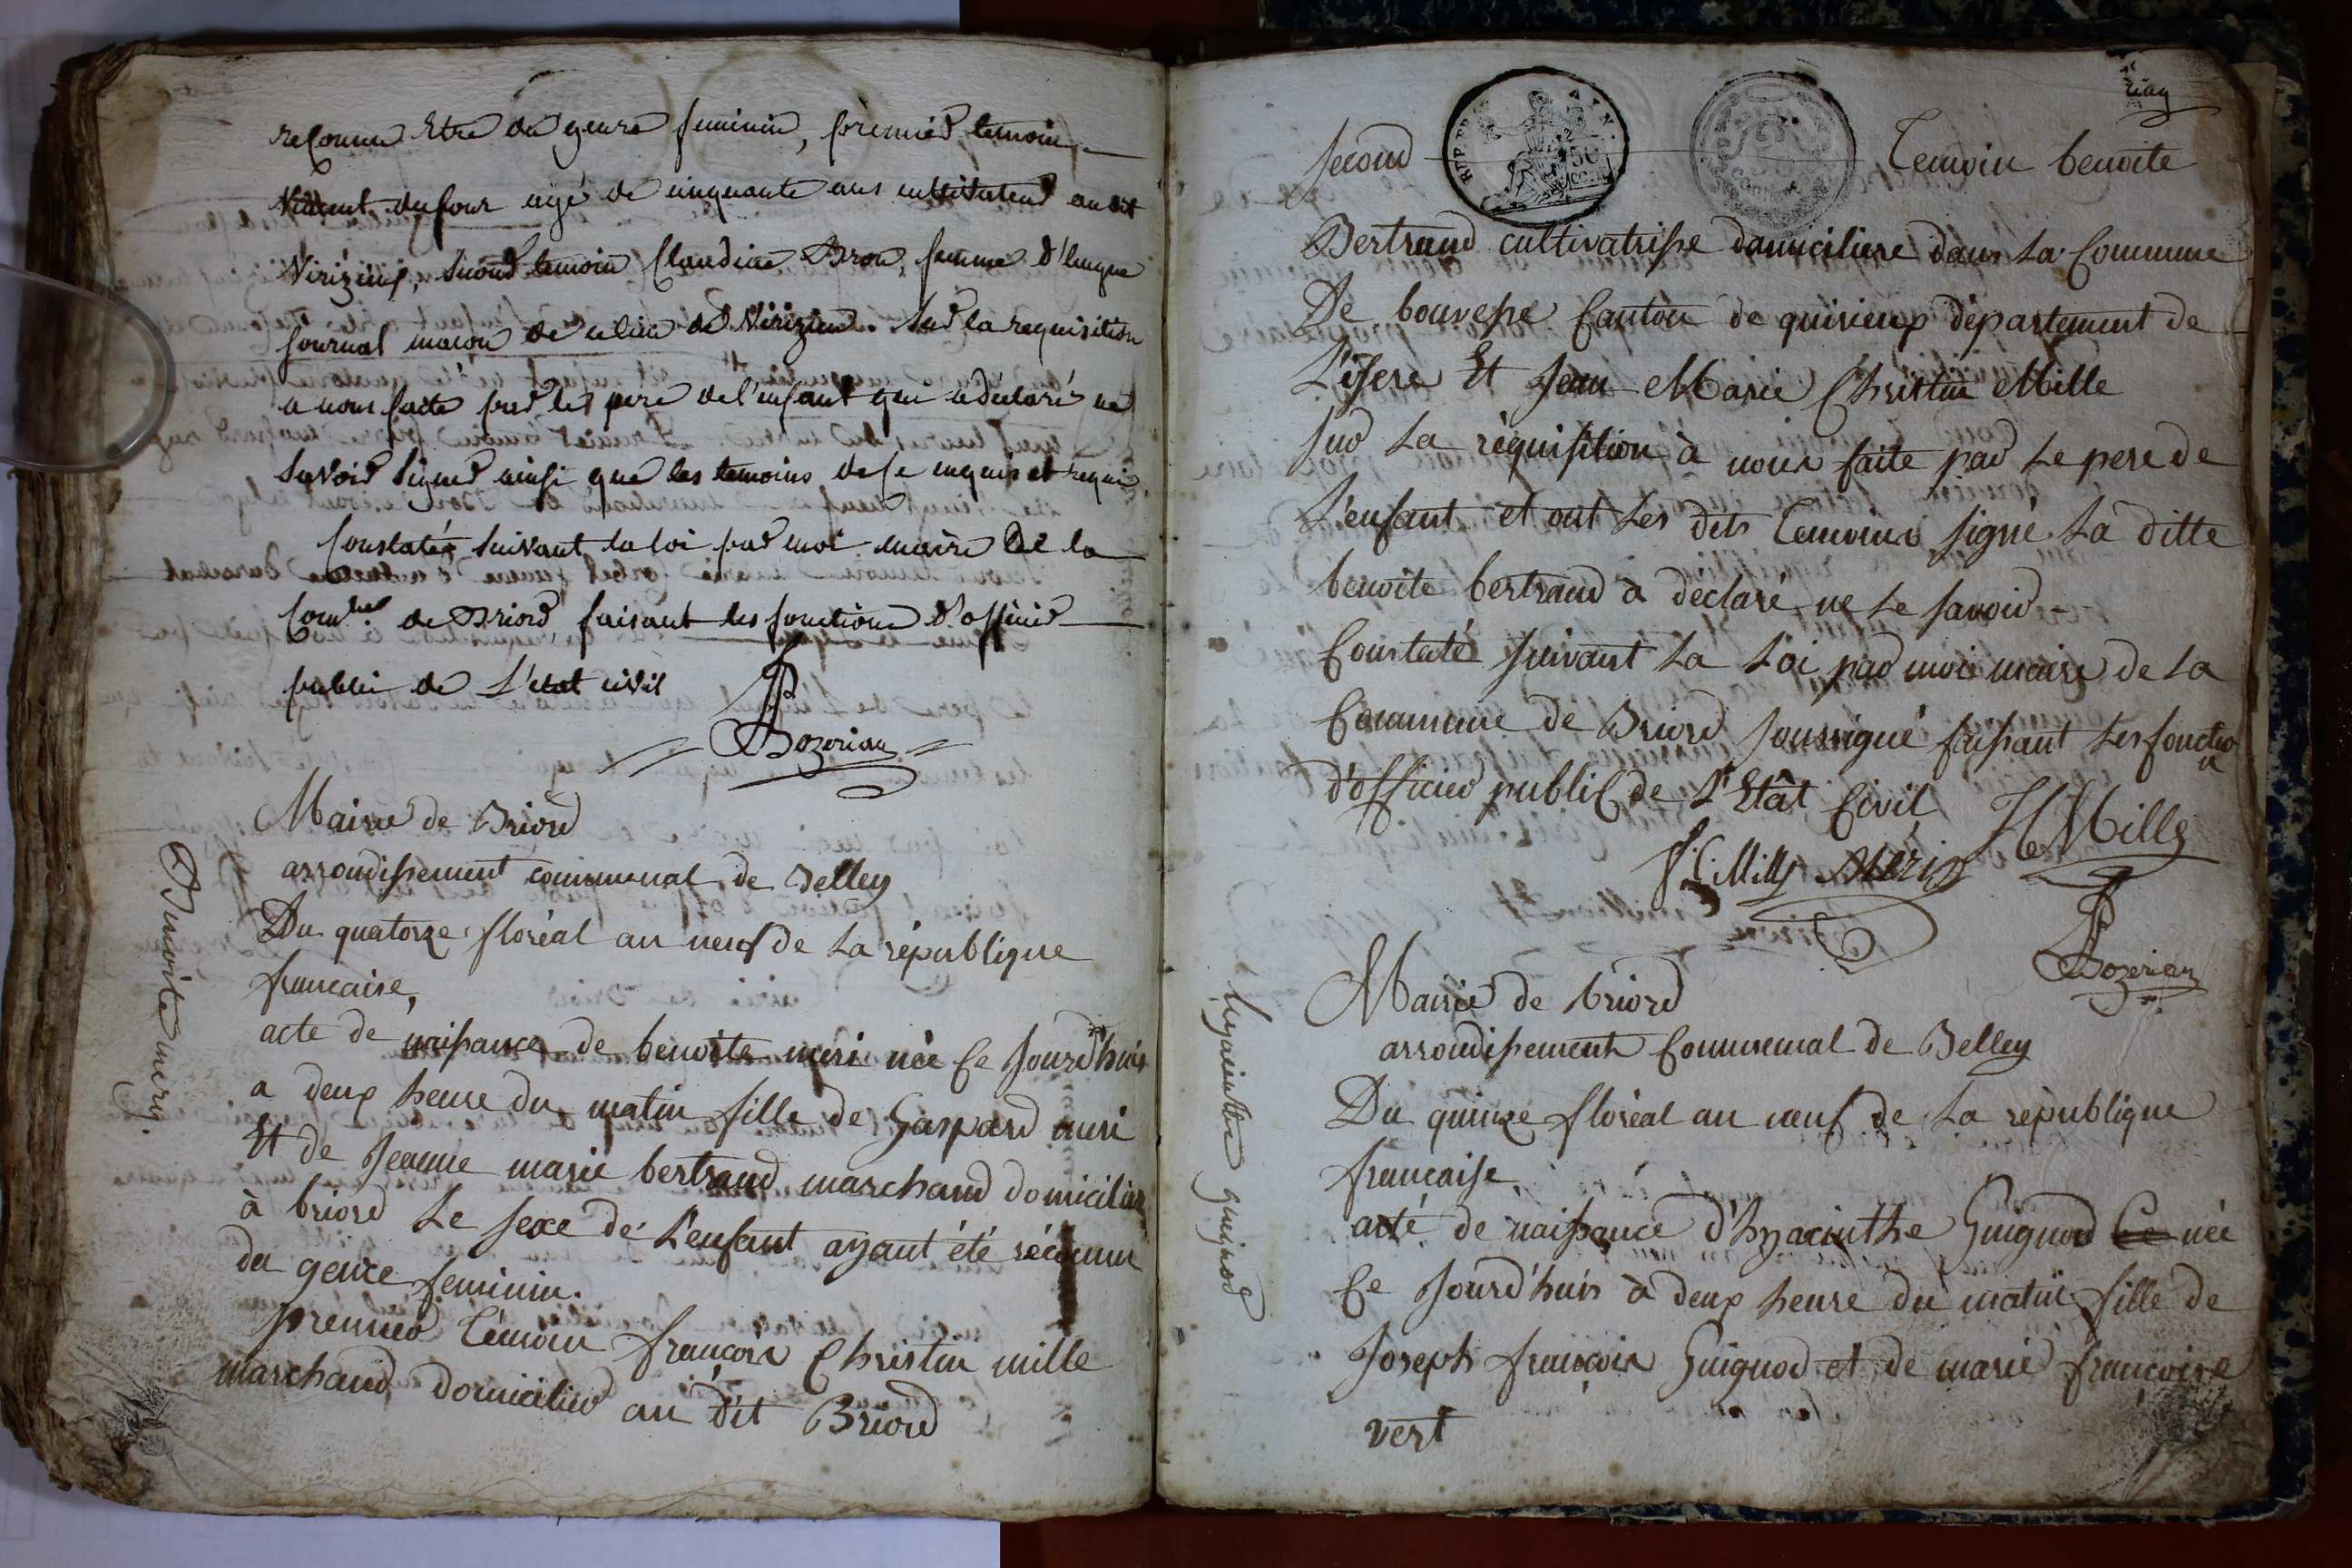 reconnu Etre du genre feminin, premier temoin
Vincent dufour agé de cinquante ans cultivateur audit
Virizieux, second temoin Claudine Bron, femme d'
journal macon de ce lieu de Virizieu. Sur la requisition
a nous faite par les pere de l'enfant qui a déclaré ne
savoir signer ainsi que les temoins de ce enquis et requis
Constatée suivant la loi par moi maire de la
Comne de Briord, faisant les fonctions d'officier
public de L'etat civil
Bozerian
Mairie de Briord
arrondissement communal de Belley
Du quatorze floréal an neuf de La république
francaise,
acte de naissance de benoite meri née Ce jourd'huis
a deux heure du matin fille de Gaspard meri
Et de Jeanne marie bertrand marchand domicilier
à briord Le sexe de L'enfant ayant été réconnu
du genre feminin.
premier Témoin françois Christin mille
marchand domicilier au dit Briord
Benoite mery.
second Temoin benoite
Bertrand cultivatrisse domiciliere dans La Commune
De bouvesse Canton de quirieux département de
L'isere Et Jean Marie Christin Mille
sur La réquisition à nous faite par Le pere de
L'enfant et ont Les dits Temoins signé La ditte
benoite bertrand à déclaré ne Le savoir
Constaté suivant La Loi par moi maire de La
Commune de Briord soussigné faisant Les fonction
d'officier public de L'Etât Civil
J.C. Mille Meri
Mille
Bozerian
Mairie de briord
arrondissement Communal de Belley
Du quinze floréal an neuf de La république
francaise
acte de naissance d'hyacinthe Guignod Ce née
Ce jourd'huis à deux heure du matin fille de
Joseph françois Guignod et de marie françoise
vert
hyacinthe guignod